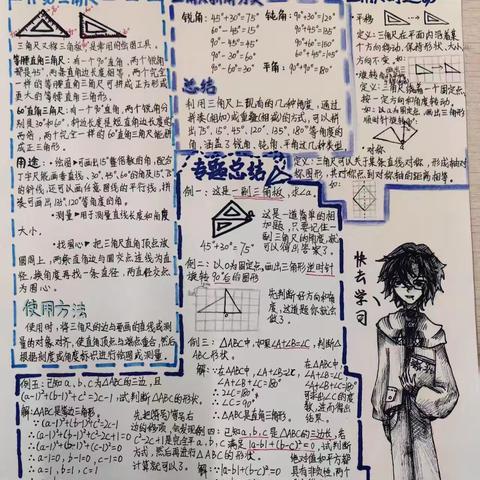 三角尺又称三角板,是常用的绘图工具。
等腰直角三角尺:有一个90°直角,两个锐角
都是45°,两条直角边长度相等,两个完全一
样的等腰直角三角尺可拼成正方形或
更大的等腰直角三角形。
60°直角三角尺:有一个直角,两个锐角分
别是30°和60°,斜边长度是短直角边长度的
两倍,两个完全一样的60°直角三角尺能拼
成正三角形。
用途:
绘图
可画出15°整倍数的角,配合
丁字尺能画垂线、30°、45°、60°的角及15°、75°
的斜线,还可以画任意图的平行线,拼
接可画出135°、120°等角度的角。
测量
用于测量直线长度和角度
大小。
找圆心
把三角尺直角顶点放
圆周上,两条直角边与圆交点连线为直
径,换角度再找一条直径,两直径交点
为圆心。
使用方法
使用时,将三角尺的边与要画的直线或测
量的对象对齐,使直角顶点与端点重合,然后
根据刻度或角度标识进行绘图或测量。
锐角:45°+30°=75°
60°-45°=15°
90°-45°=45°
90°-30°=60°
90°-60°=30°
钝角:90°+30°=120°
90°+45°=135°
90°+60°=150°
平角:90°+90°=180°
总结
利用三角尺上现有的几种角度,通过
拼接(相加)或重叠(相减)的方式,可以拼
出75°、15°、45°、120°、135°、180°等角度的
角,涵盖了锐角、钝角、平角这几种类型
平移
定义:三角尺在平面内沿着某
个方向移动,保持形状、大小
方向不变。如:
旋转
围绕一个固定点,
按一定方向和角度转动。
如:以O为固定点,画出三角形
顺时针旋转
对称
定义:三角尺可以关于某条直线对称,形成轴对
称图形,其对称点到对称轴的距离相等。
如:
专题总结
例一:这是一副三角板,求∠a。
45°+30°=75°
这是一道简单的相
加题,只要记住一
副三角尺的角度,就可
以得出答案了。
例二:以O为固定点,画出三角形逆时针
旋转90°后的图形
先判断好方向和角
度,这道题你就会
做了。
例三:△ABC中,如果∠A+∠B=∠C,判断△
ABC形状。
解:∵在△ABC中,∠A+∠B=∠C,
∠A+∠B+∠C=180°
∴2∠C=180°
∴∠C=90°
∴△ABC是直角三角形。
在△ABC中
∠A+∠B+∠C=180°
可求出∠C的度
数,进而得出
结果。
例四:已知a,b,c是△ABC的三边长,若
a,b,c满足|a-b|+(b-c)²=0,试判断
△ABC的形状。
解:∵|a-b|+(b-c)²=0
绝对值和平方都
具有非负性,两个
例五:已知a,b,c为△ABC的三边,且
(a-1)²+(b-1)²+c²=2c-1,试判断△ABC的形状。
解:△ABC是等边三角形。
∵(a-1)²+(b-1)²+c²=2c-1
∴(a-1)²+(b-1)²+c²-2c+1=0
∴(a-1)²+(b-1)²+(c-1)²=0
∴a-1=0,b-1=0,c-1=0
∴a=1,b=1,c=1
先把等号右
边的移项,会发现
c²-2c+1是完全平
方式,然后再进行
计算就可以了。
快去学习